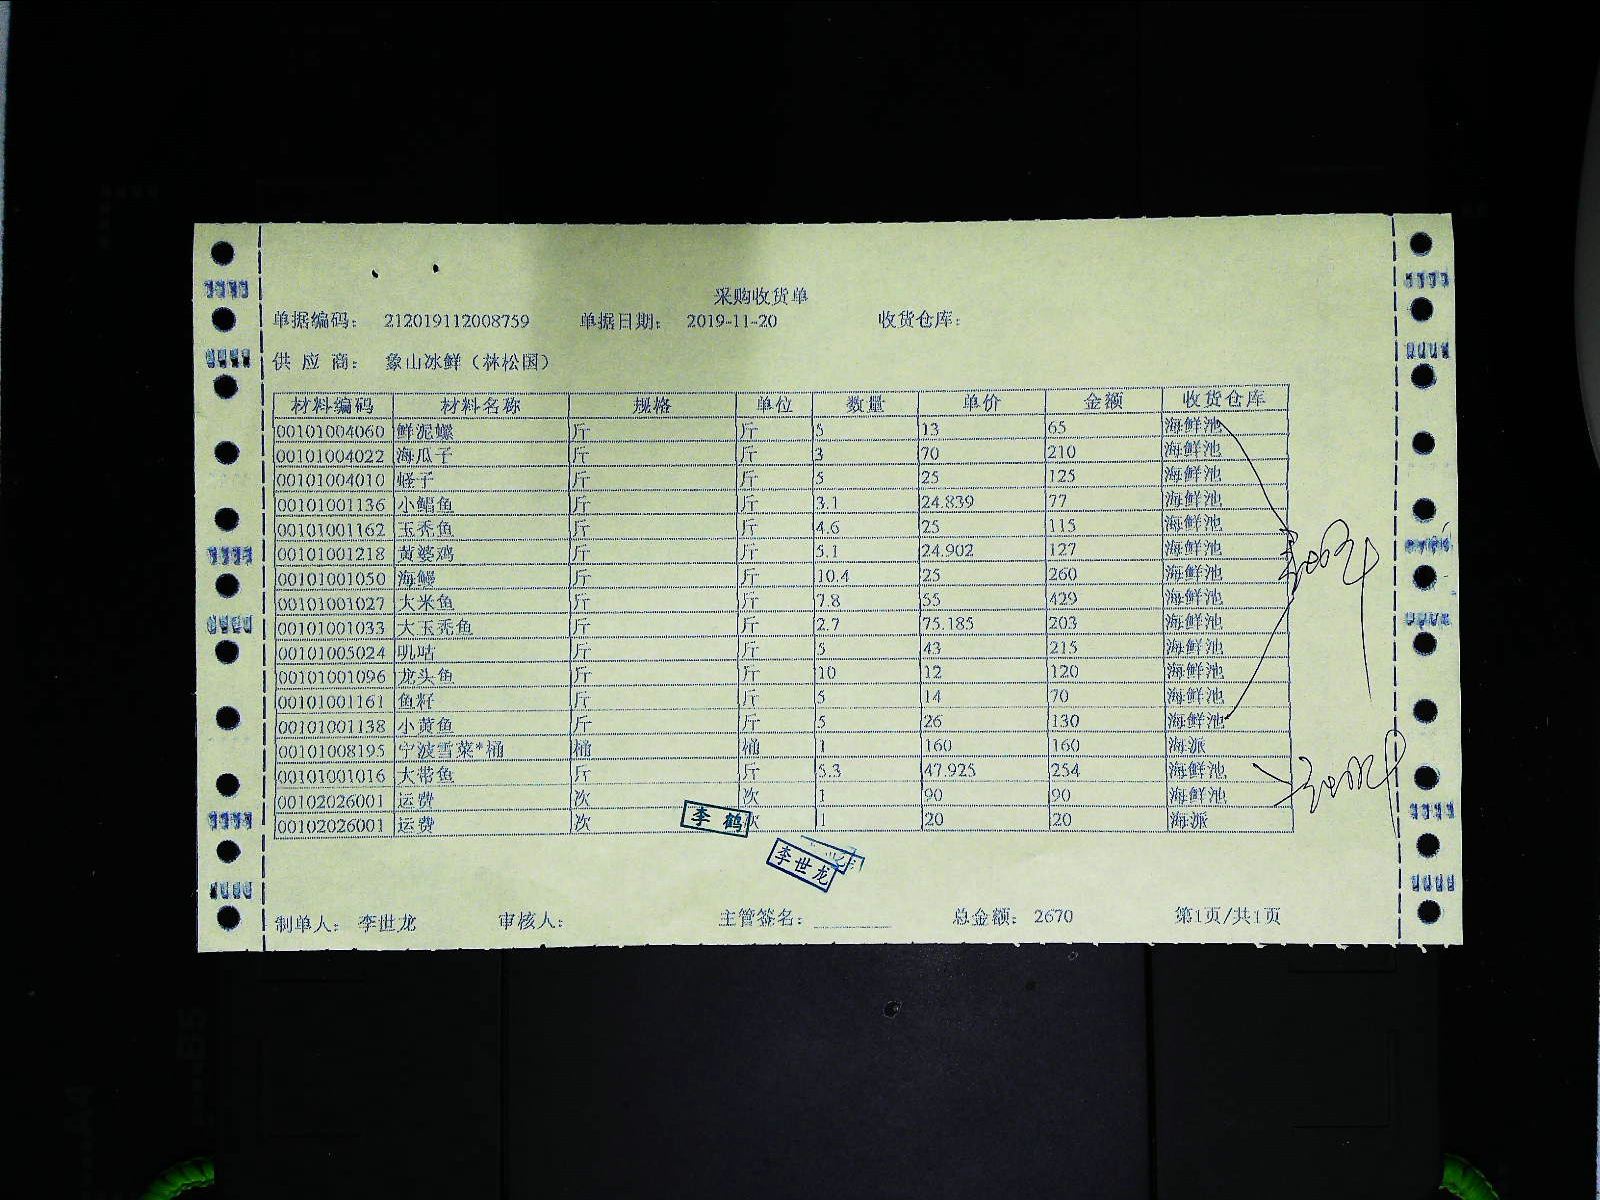 采购收货单
单据编码： 212019112008759 单据日期： 2019-11-20 收货仓库：
供 应 商： 象山冰鲜（林松国）
材料编码 材料名称 规格 单位 数量 单价 金额 收货仓库
00101004060 鲜泥螺 斤 斤 5 13 65 海鲜池
00101004022 海瓜子 斤 斤 3 70 210 海鲜池
00101004010 蛏子 斤 斤 5 25 125 海鲜池
00101001136 小鲳鱼 斤 斤 3.1 24.839 77 海鲜池
00101001162 玉秃鱼 斤 斤 4.6 25 115 海鲜池
00101001218 黄婆鸡 斤 斤 5.1 24.902 127 海鲜池
00101001050 海鳗 斤 斤 10.4 25 260 海鲜池
00101001027 大米鱼 斤 斤 7.8 55 429 海鲜池
00101001033 大玉秃鱼 斤 斤 2.7 75.185 203 海鲜池
00101005024 叽咕 斤 斤 5 43 215 海鲜池
00101001096 龙头鱼 斤 斤 10 12 120 海鲜池
00101001161 鱼籽 斤 斤 5 14 70 海鲜池
00101001138 小黄鱼 斤 斤 5 26 130 海鲜池
00101008195 宁波雪菜*桶 桶 桶 1 160 160 海派
00101001016 大带鱼 斤 斤 5.3 47.925 254 海鲜池
00102026001 运费 次 次 1 90 90 海鲜池
00102026001 运费 次 次 1 20 20 海派
李鹤
李世龙
制单人： 李世龙 审核人： 主管签名： 总金额： 2670 第1页/共1页